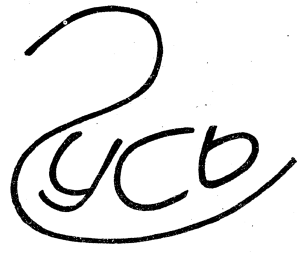 Гусь